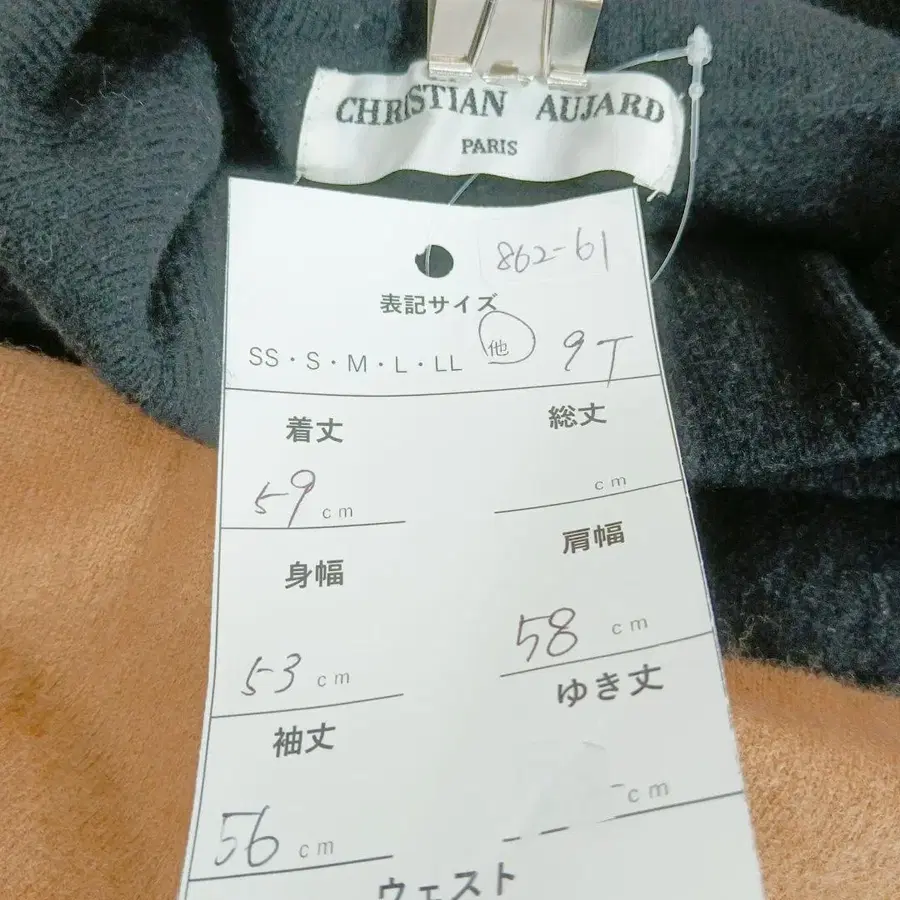 CHRISTIAN AUJARD
PARIS
862-61
表記サイズ
SS・S・M・L・LL 他 9T
着丈 総丈
59 cm cm
身幅 肩幅
53 cm 58 cm
袖丈 ゆき丈
56 cm cm
ウェスト